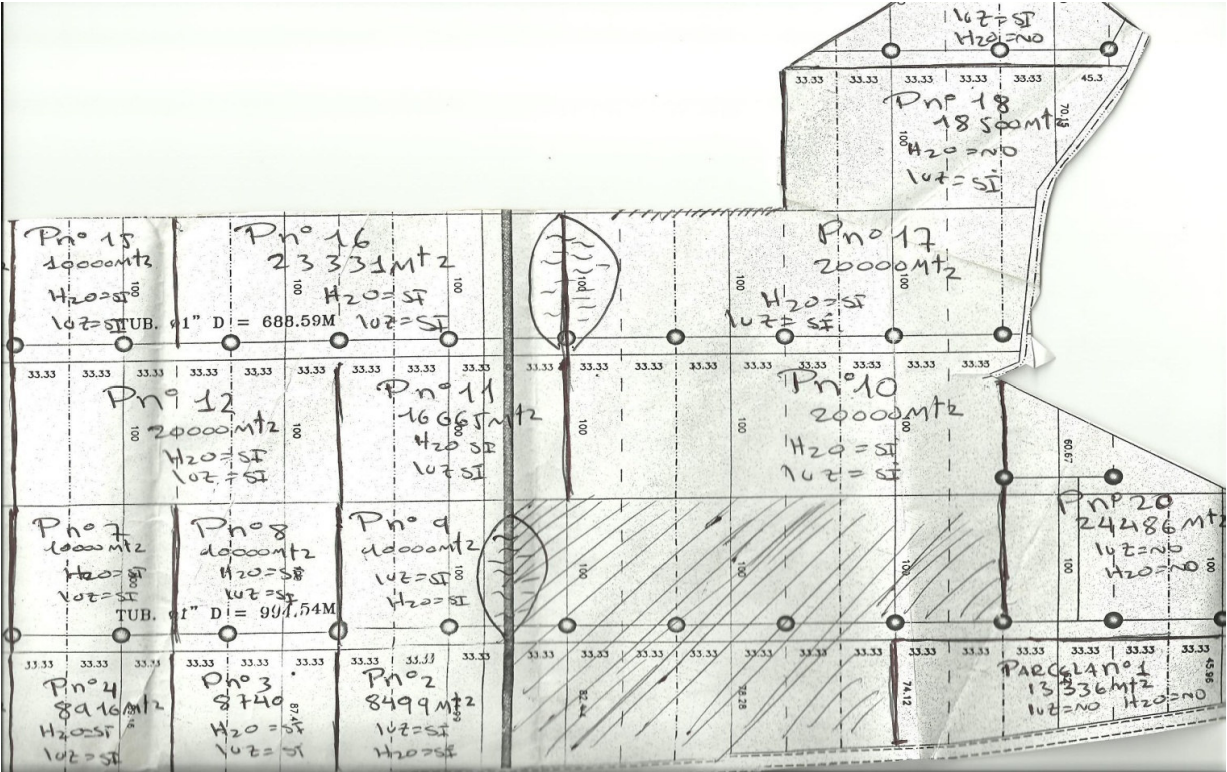 luz=SI
H2O=NO
33.33 33.33 33.33 33.33 33.33 45.3
Pnº 18
18500mt2
70.15
100
H2O=NO
luz=SI
Pnº 15
10000mt2
H2O=SI
100
luz=SI
Pnº 16
23331Mt2
100
H2O=SI
100
luz=SI
TUB. ø1" D = 688.59M
100
Pnº 17
20000Mt2
100
100
H2O=SI
luz=SI
33.33 33.33 33.33 33.33 33.33 33.33 33.33 33.33 33.33 33.33 33.33 33.33 33.33 33.33 33.33 33.33 33.33
Pnº 12
20000mt2
100
100
H2O=SI
luz=SI
Pnº 11
16665mt2
100
H2O SI
luz SI
100
100
Pnº 10
20000Mt2
100
H2O=SI
luz=SI
60.67
Pnº 7
10000mt2
H2O=SI
100
luz=SI
Pnº 8
10000mt2
H2O=SI
100
luz=SI
TUB. ø1" D = 994.54M
Pnº 9
10000mt2
luz=SI
100
H2O=SI
100
100
100
Pnº 20
24486Mt2
luz=NO
H2O=NO
100
100
33.33 33.33 33.33 33.33 33.33 33.33 33.33 33.33 33.33 33.33 33.33 33.33 33.33 33.33 33.33 33.33 33.33
Pnº 4
8916Mt2
H2O=SI
luz=SI
Pnº 3
8740
87.41
H2O=SI
luz=SI
Pnº 2
8499Mt2
luz=SI
H2O=SI
82.44
78.28
74.12
PARCELA nº 1
13336Mt2
luz=NO H2O=NO
45.96